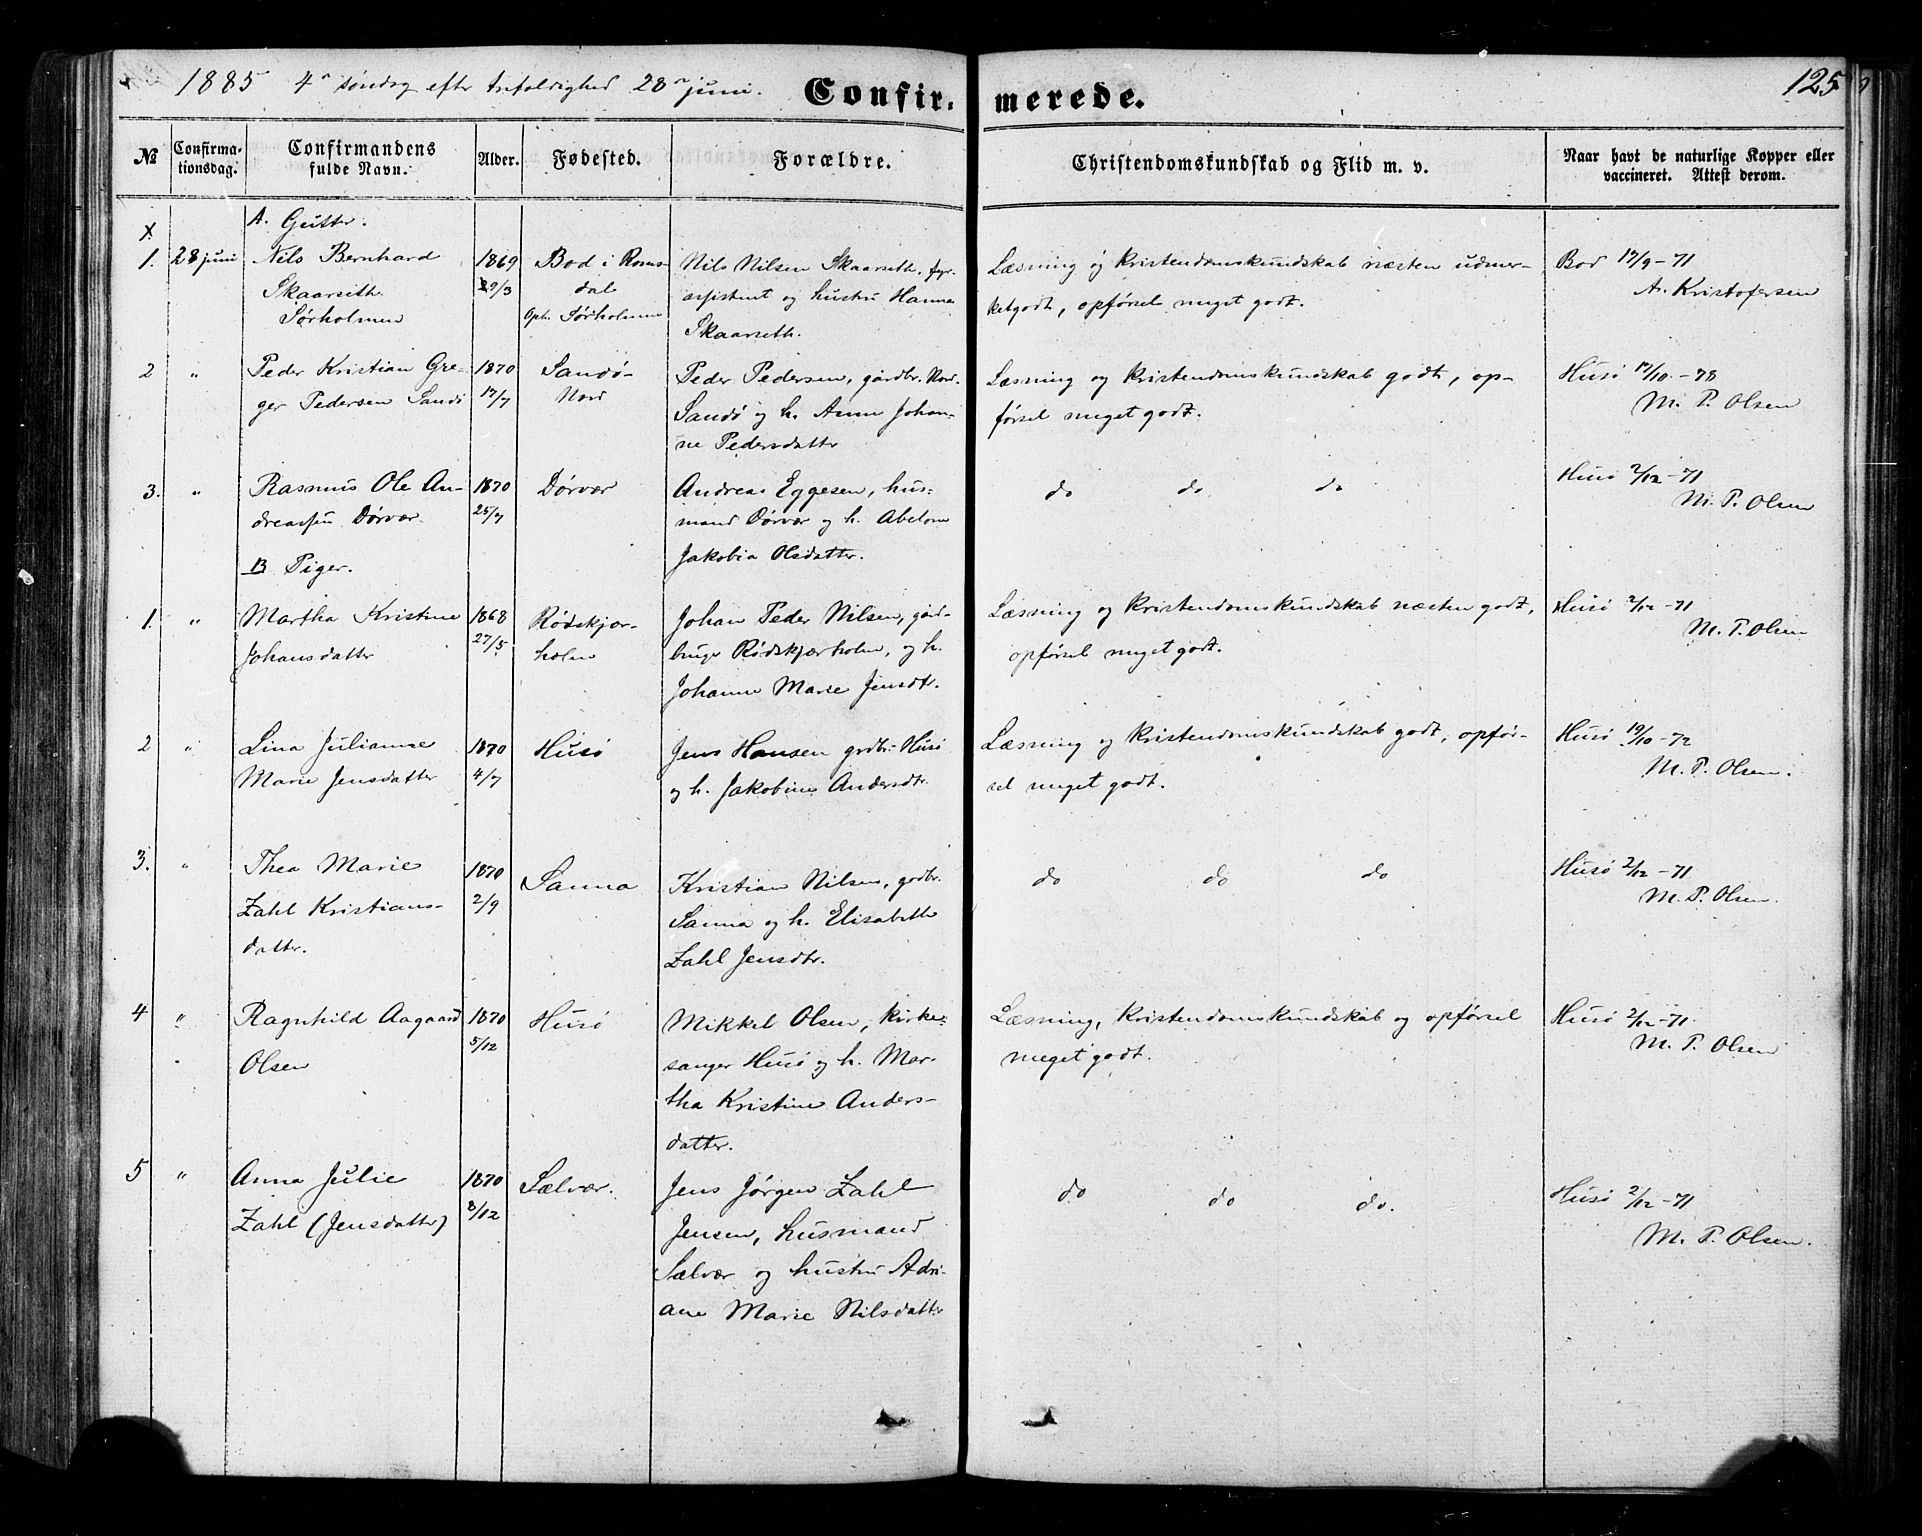 1885 4de søndag efter trefoldighed 28de juni.
Confirmerede.
125
№
Confirmationsdag.
Confirmandens fulde Navn.
Alder.
Fødested.
Forældre.
Christendomskundskab og Flid m. v.
Naar havt de naturlige Kopper eller vaccineret. Attest derom.
A. Gutter.
x
1. 28 juni
Nils Bernhard
Skaarseth
Sørholmen
1869
29/3
Bod i Roms-
dal
Oph. Sørholmen
Nils Nilsen Skaarseth, fyr-
assistent og hustru Hanna
Skaarseth.
Læsning og kristendomskundskab næsten udmer-
ketgodt, opførsel meget godt.
Bod 17/9-71
A. Kristofersen
2 "
Peder Kristian Gre-
ger Pedersen Sandö
1870
17/7
Sandö-
Nord
Peder Pedersen, gårdbr. Nord-
Sandö og h. Anne Johan-
ne Pedersdatter
Læsning og kristendomskundskab godt, op-
førsel meget godt.
Husö 17/10-78
M. P. Olsen
3. "
Rasmus Ole An-
dreassen Dörvær.
1870
25/7
Dörvær
Andreas Eggesen, hus-
mand Dörvær og h. Abelone
Jakobia Olsdatter.
do do do
Husö 2/12-71
M. P. Olsen
B Piger.
1. "
Martha Kristine
Johansdatter
1868
27/5
Rödskjær-
holm
Johan Peder Nilsen, gård-
bruger Rödskjærholm, og h.
Johanne Marie Jensdtr.
Læsning og kristendomskundskab næsten godt,
opførsel meget godt.
Husö 2/12-71
M. P. Olsen
2 "
Lina Julianne
Marie Jensdatter
1870
4/7
Husö
Jens Hansen grdbr. Husö
og h. Jakobine Andersdtr.
Læsning og kristendomskundskab godt, opfør-
sel meget godt.
Husö 19/10-72
M. P. Olsen.
3. "
Thea Marie
Zahl Kristians-
datter.
1870
2/9
Sanna
Kristian Nilsen, grdbr.
Sanna og h. Elisabeth
Zahl Jensdtr.
do do do
Husö 2/12-71
M. P. Olsen.
4 "
Ragnhild Aagaard
Olsen
1870
5/12
Husö
Mikkel Olsen, kirke-
sanger Husö og h. Mar-
tha Kristine Anders-
datter.
Læsning, kristendomskundskab og opførsel
meget godt.
Husö 2/12-71.
M. P. Olsen
5 "
Anna Julie
Zahl (Jensdatter)
1870
8/12
Sælvær.
Jens Jörgen Zahl
Jensen, husmand
Sælvær og hustru Adri-
ane Marie Nilsdatter
do do do.
Husö 2/12-71
M. P. Olsen.